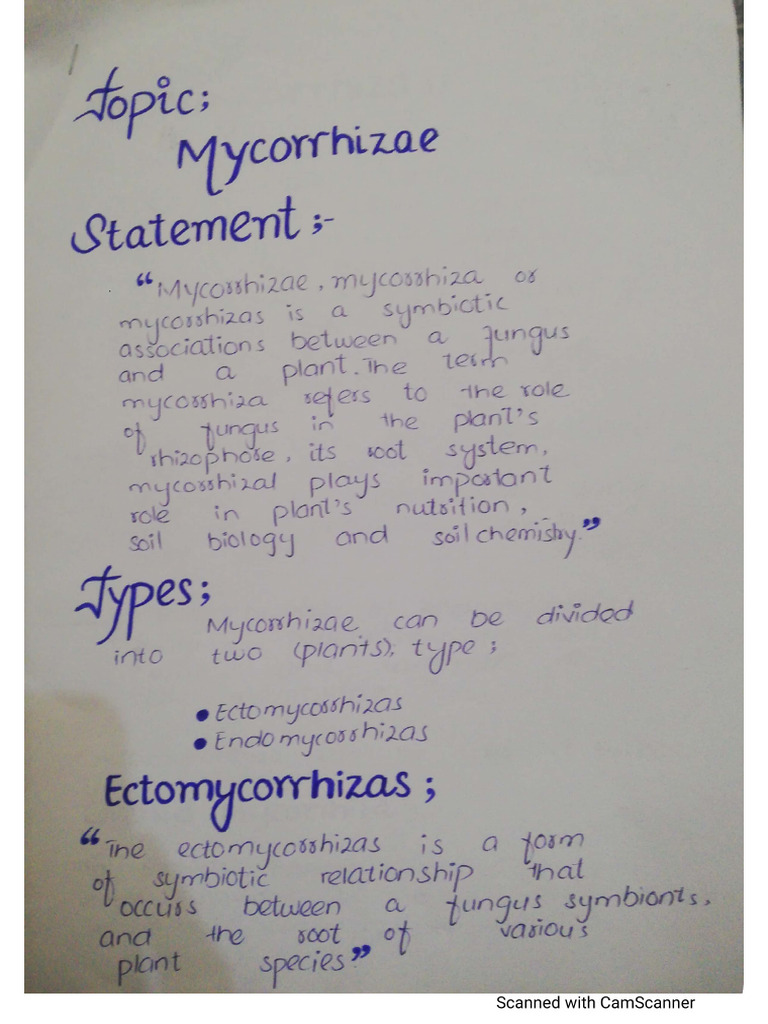 Topic;
Mycorrhizae
Statement ;-
“Mycorrhizae, mycorrhiza or
mycorrhizas is a symbiotic
associations between a fungus
and a plant. The term
mycorrhiza refers to the role
of fungus in the plant's
rhizophore, its root system,
mycorrhizal plays important
role in plant's nutrition,
soil biology and soil chemistry.”
Types;
Mycorrhizae can be divided
into two (plants); type ;
• Ectomycorrhizas
• Endomycorrhizas
Ectomycorrhizas ;
“The ectomycorrhizas is a form
of symbiotic relationship that
occurs between a fungus symbionts,
and the root of various
plant species”
Scanned with CamScanner